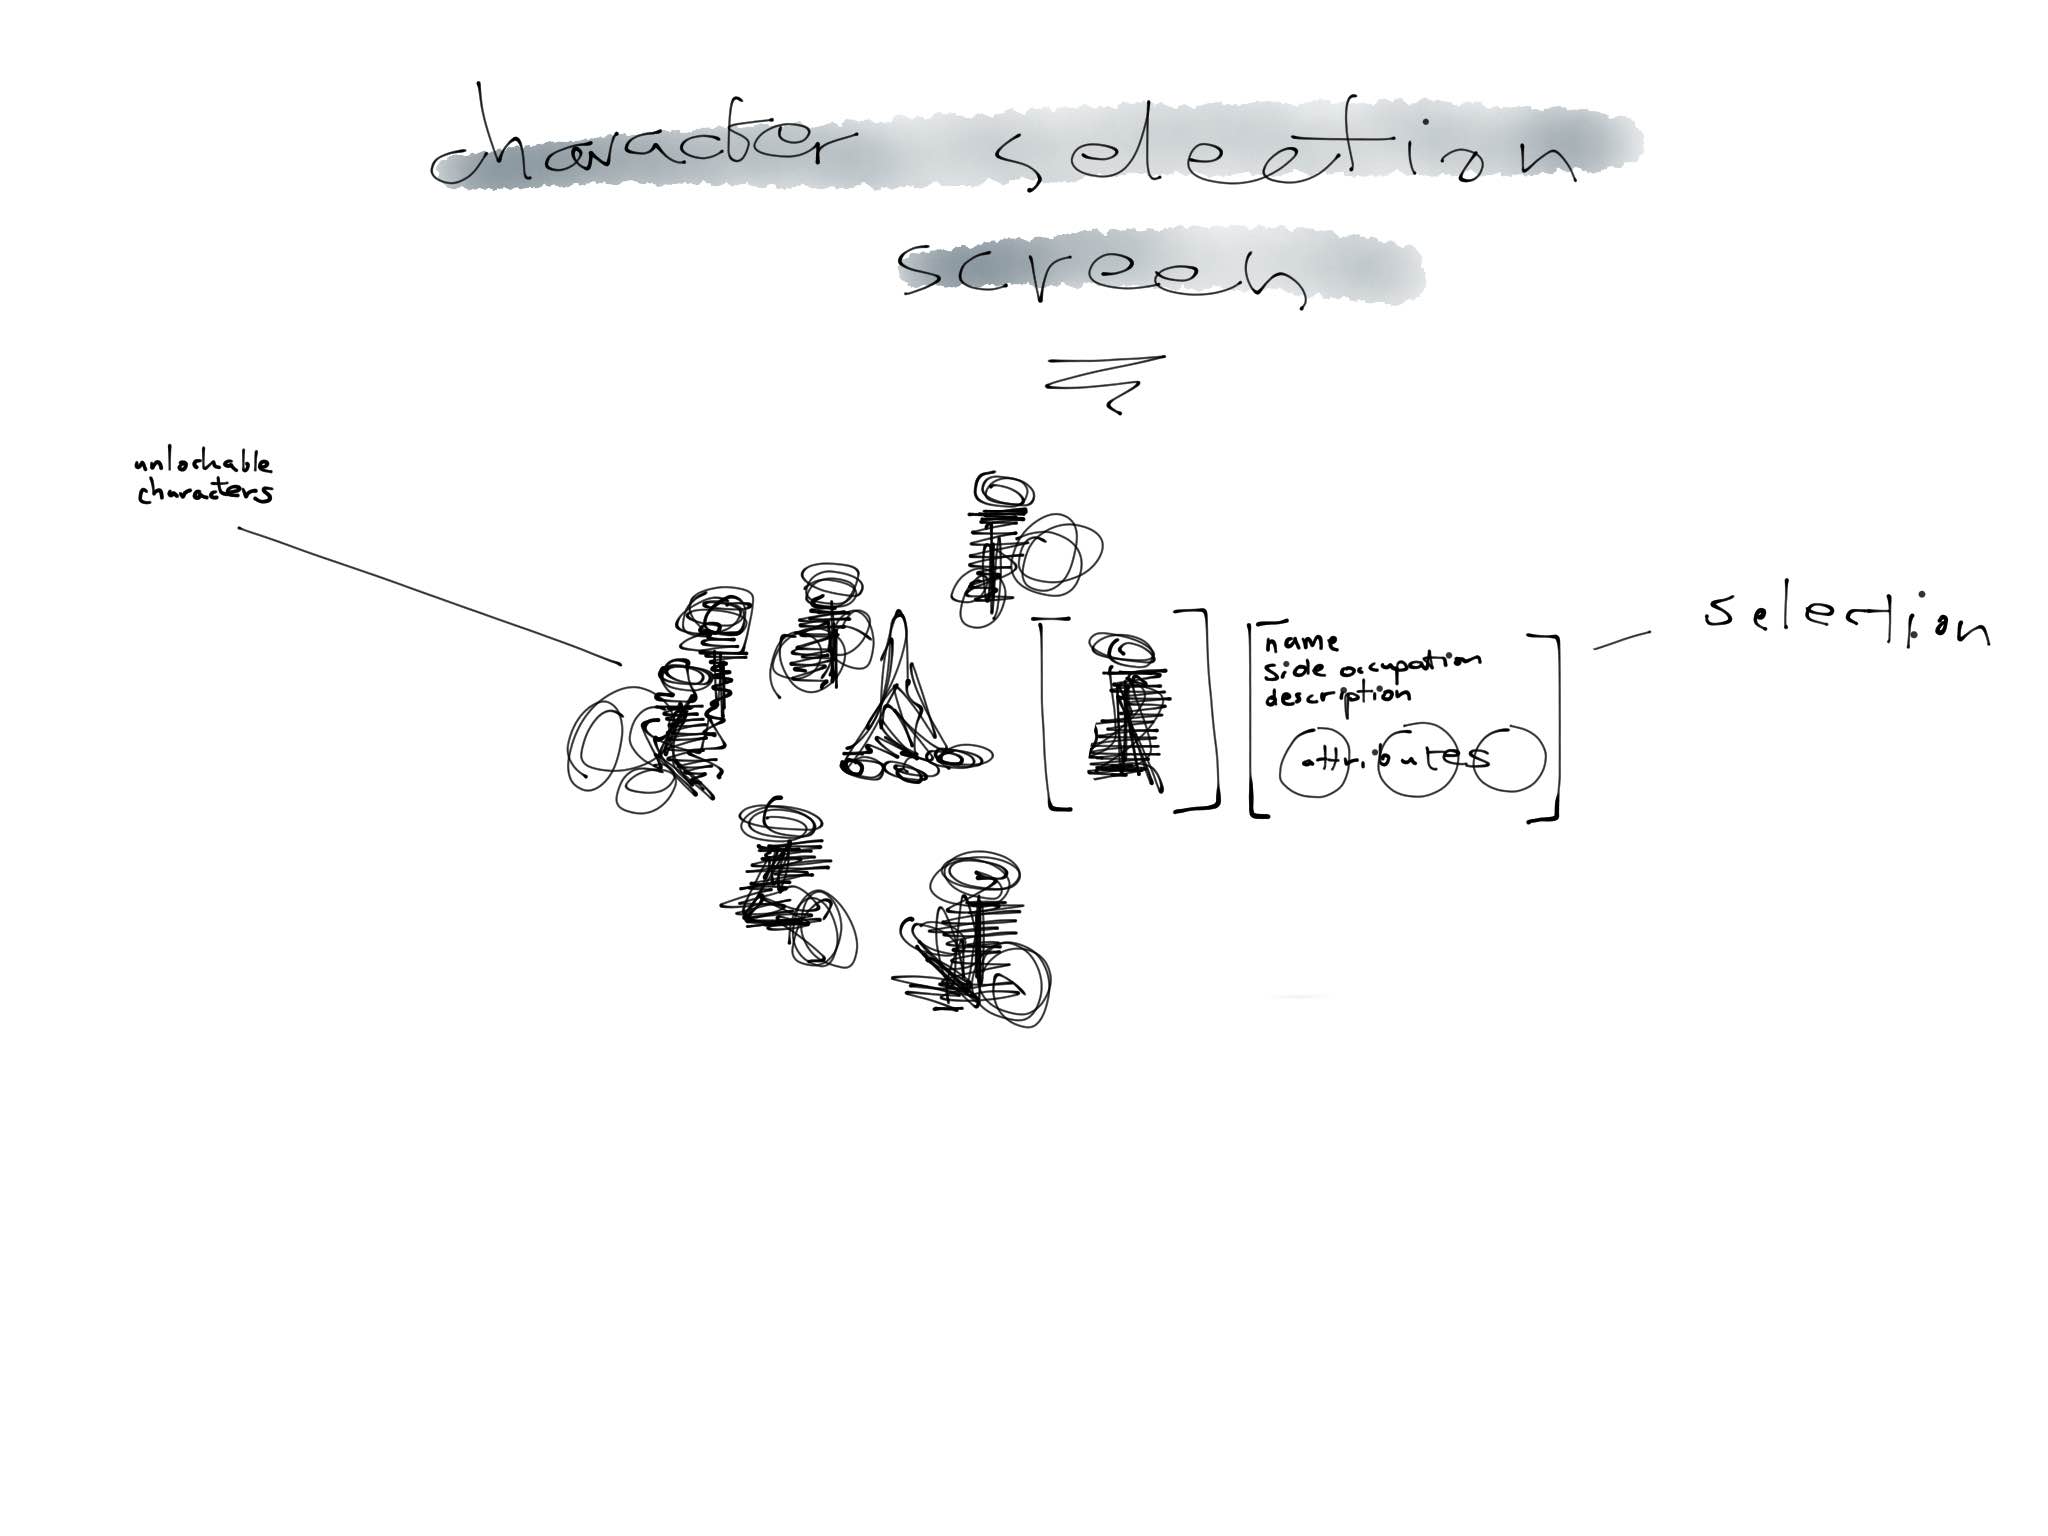 character selection
screen
unlockable
characters
selection
name
side occupation
description
attributes